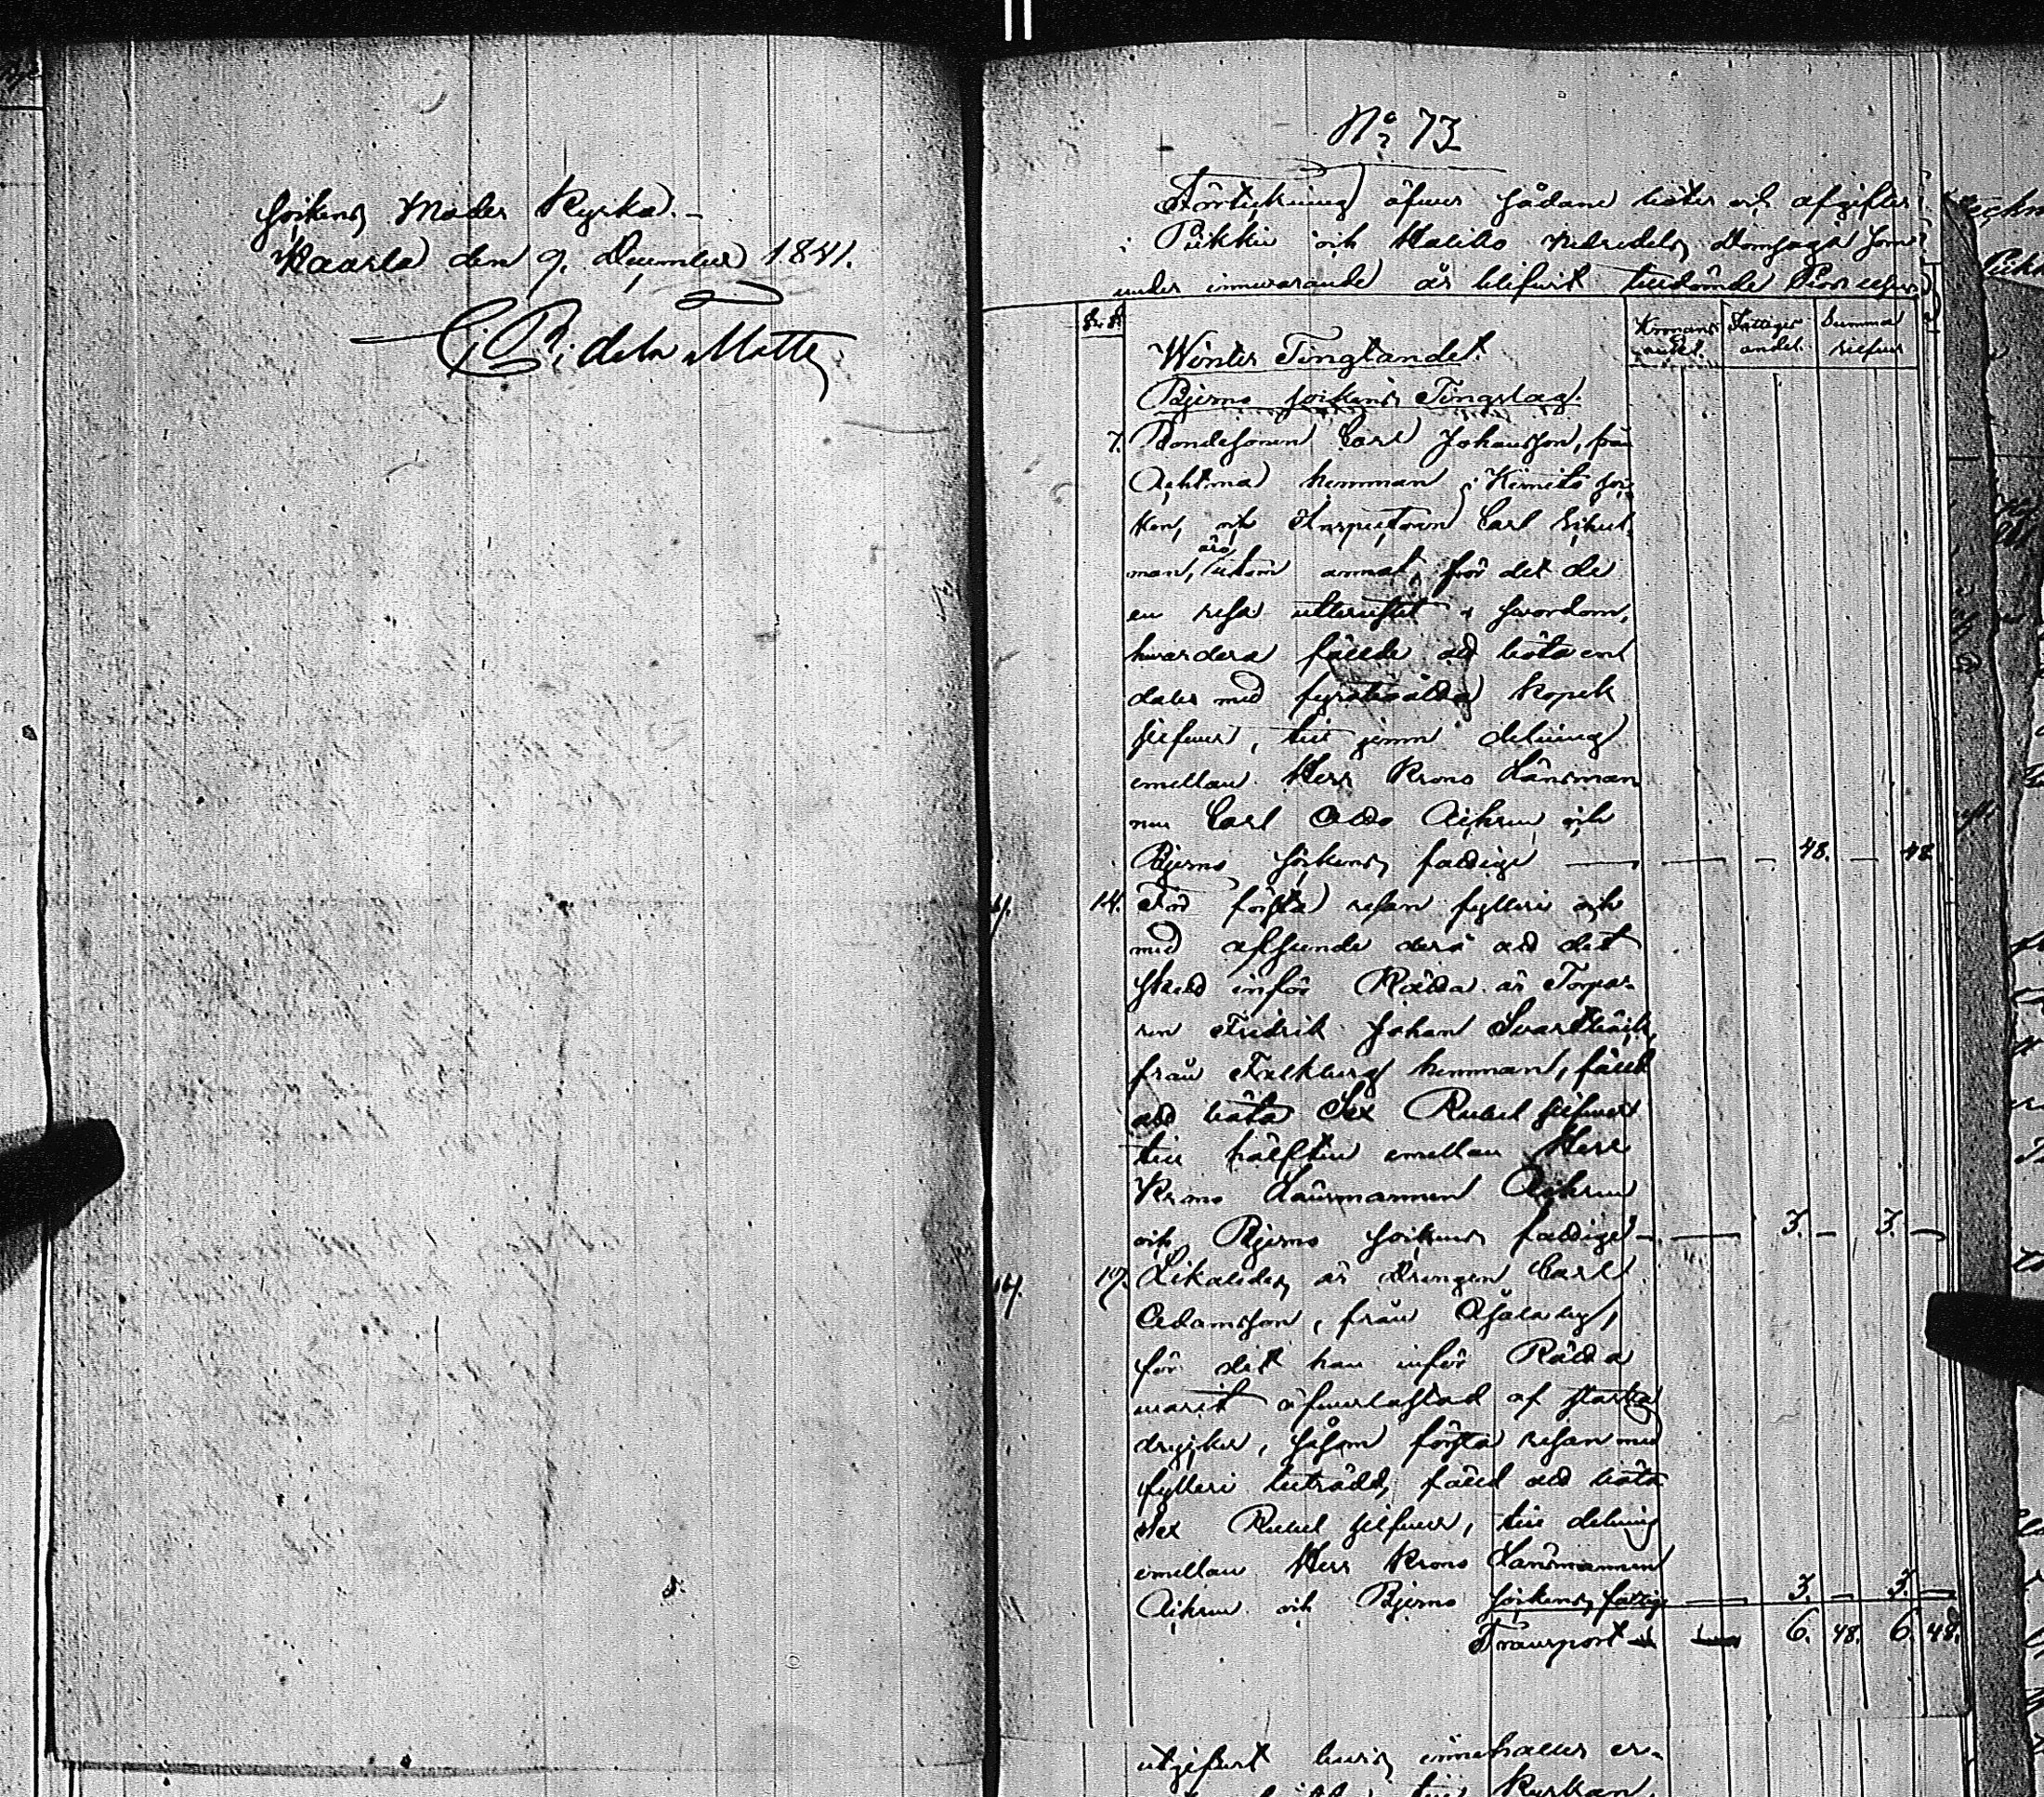 Sockens Moder Kyrka.
Kaarla den 9. December 1841.
C. R. de la Motte
No. 73
Förteckning öfver sådane böter och afgifter
i Pikkie och Haliko Nedredels Domsaga som
under innevarande år blifvit
§. §.
Kronans andel.
Fattiges andel.
Summa silfver
Winter Tingtandet.
Bjerno Sockens Tingslag.
7. Bondesonen Carl Johansson, från
hemman i Kimito soc-
ken, och Inspectoren Carl Eckel-
äro
man, utom annat, för det de
en resa utbrustit i svordom,
hvardera fälde att böta en
daler med fyratioåtta Kopek
silfver, till jemn delning
emellan Herr Krono Länsman-
nen Carl Odo Aichren och
Bjerno Sockens fattige — — — 48. — 48
14. För första resan fylleri och
med afseende derå att det
skedd inför Rätta är Torpa-
ren Fredrik Johan
från Falkberg hemman, fäld
att böta Sex Rubel silfver
till hälften emellan Herr
Krono Länsmannen Aichren
och Bjerno Sockens fattige — — 3. — 3. —
17. Likaledes är Drengen Carl
Adamsson, från
för det han inför Rätta
varit öfverlastad af starka
drycker, såsom första resan med
fylleri beträdd, fäld att böta
Sex Rubel silfver, till delning
emellan Herr Krono Länsmannen
Aichren och Bjerno Sockens fattige — 3. — 3. —
Transport — — 6. 48. 6. 48.
utgifvet bevis innehåller er-
Kyrkan,